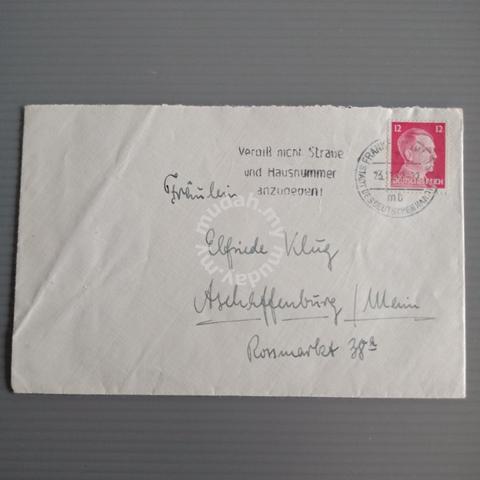 Vergiß nicht Straße
und Hausnummer
anzugeben!
12 12
DEUTSCHES REICH
FRANK
STADT DES DEUTSCHEN HAND
mb
Fräulein
Elfriede Klug
Aschaffenburg / Main
Rossmarkt 38a
mudah.my